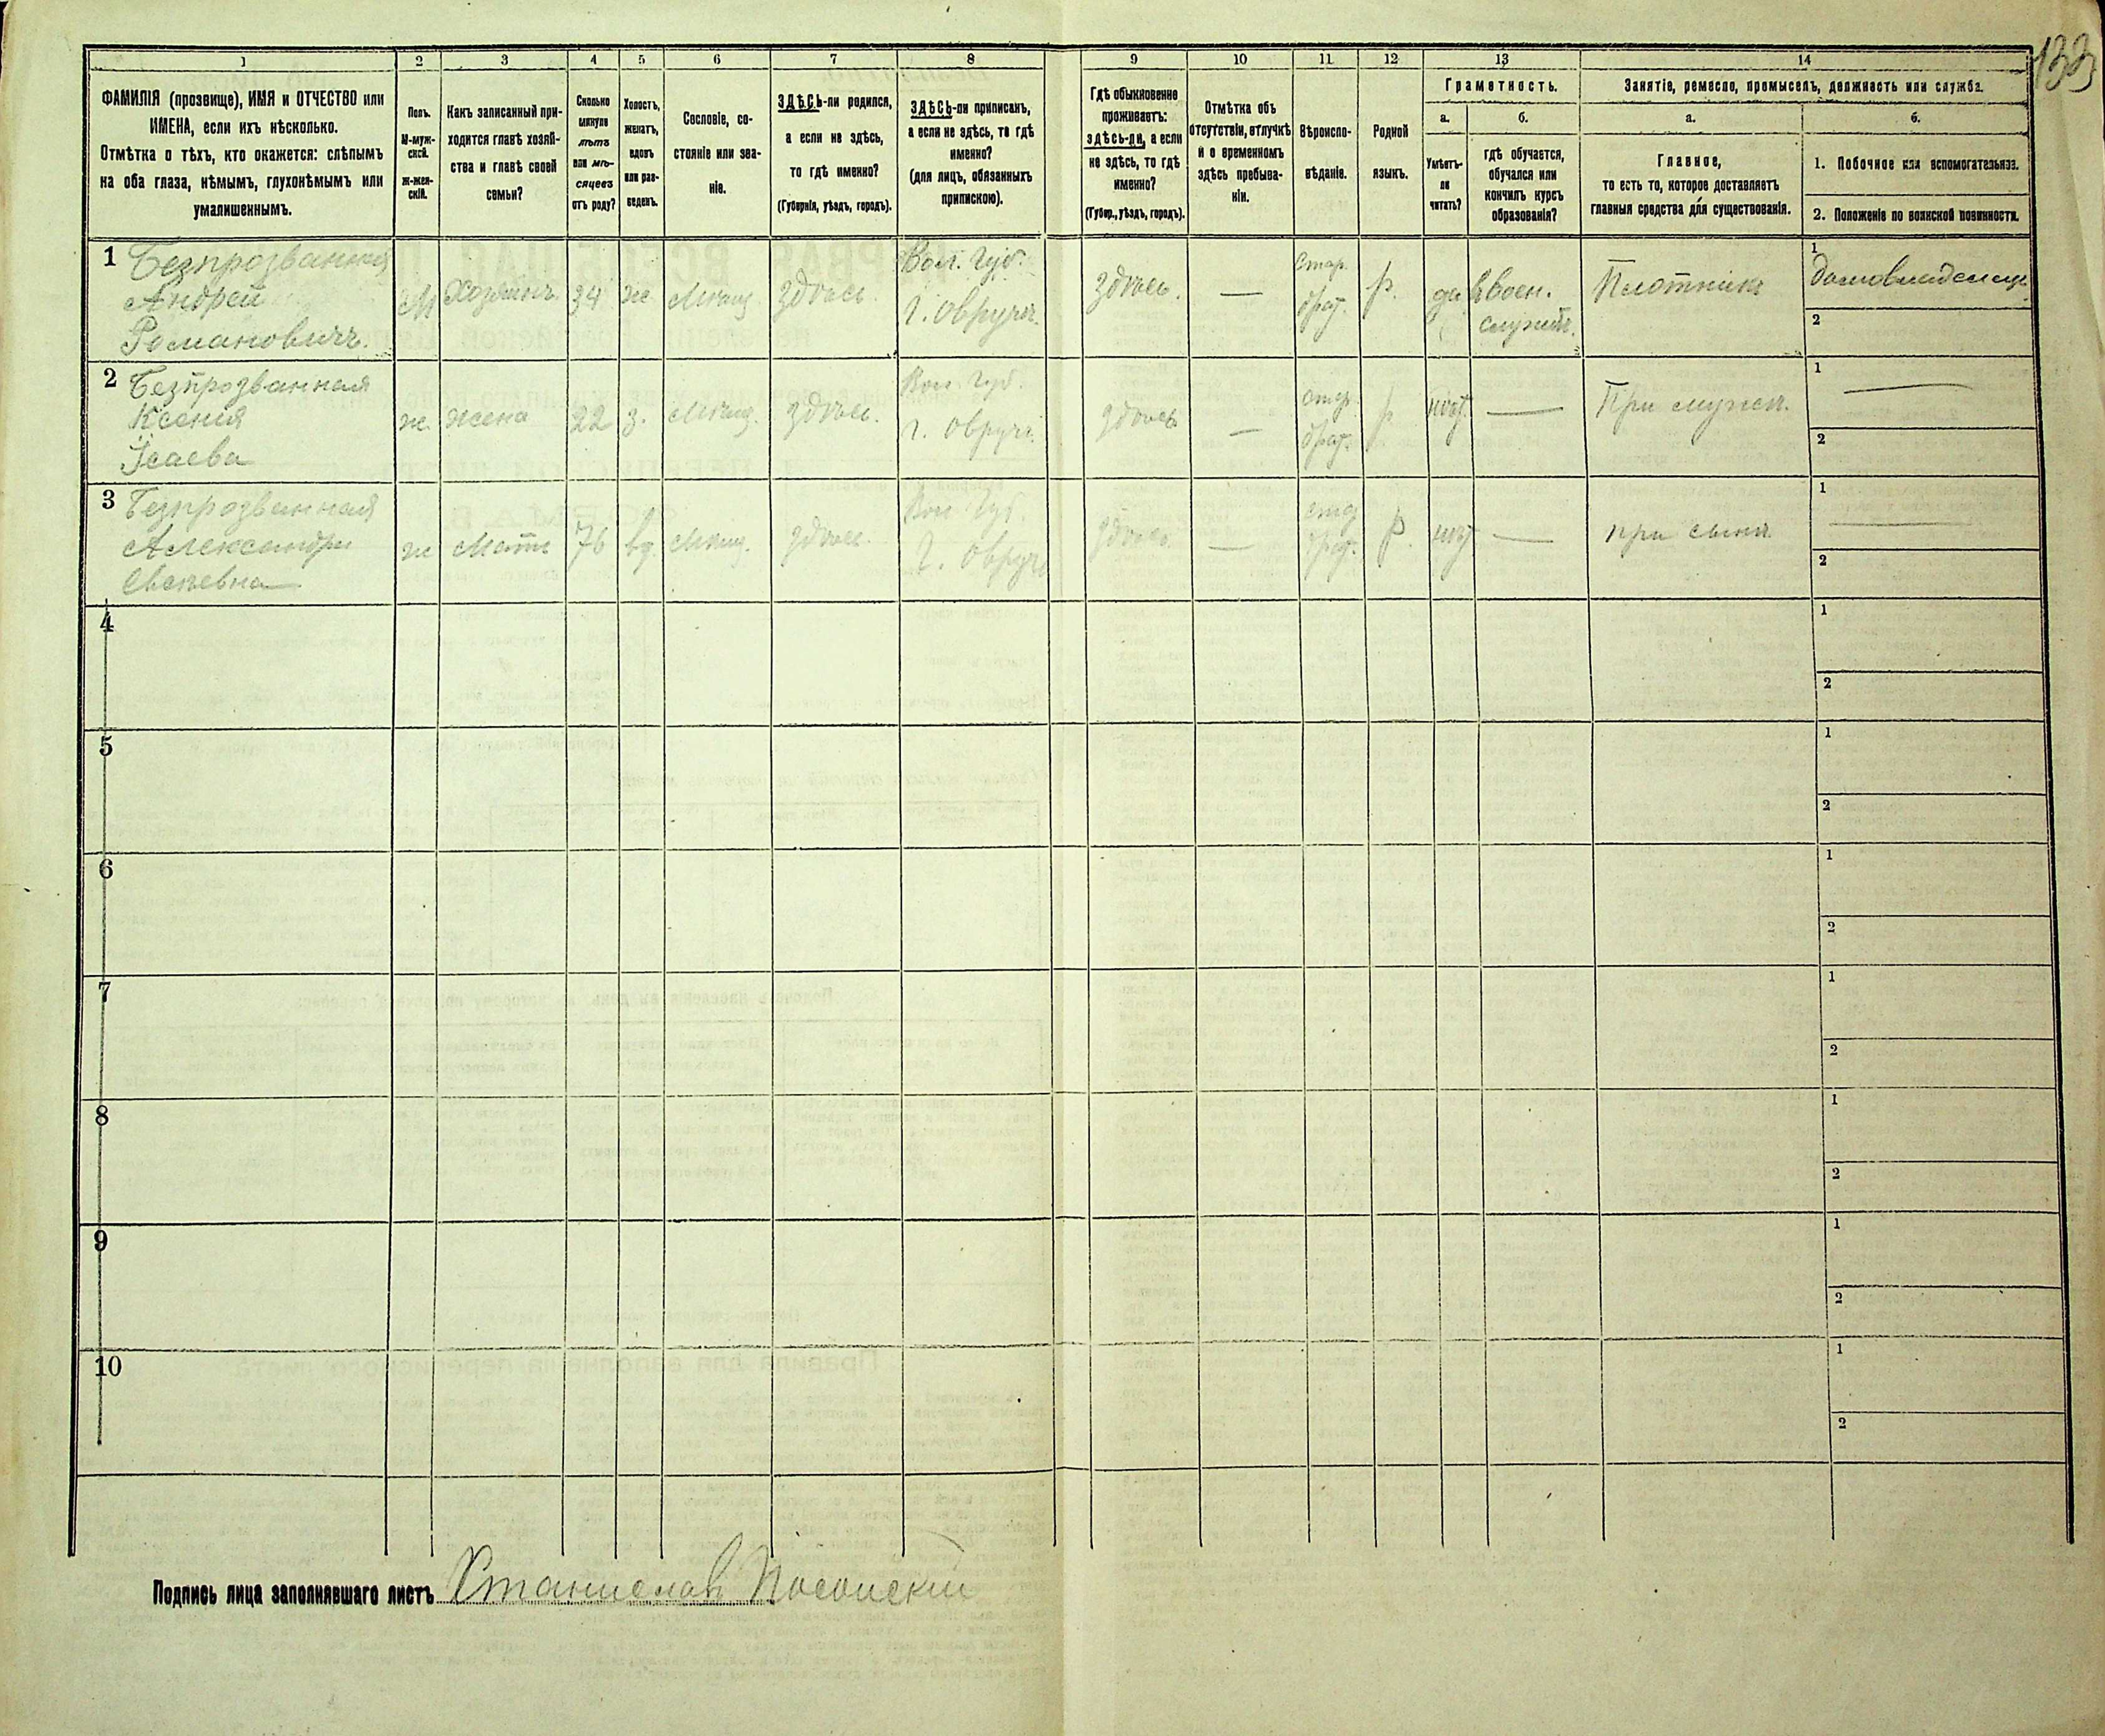 133
1 2 3 4 5 6 7 8 9 10 11 12 13 14
ФАМИЛІЯ (прозвище), ИМЯ и ОТЧЕСТВО или
ИМЕНА, если ихъ нѣсколько.
Отмѣтка о тѣхъ, кто окажется: слѣпымъ
на оба глаза, нѣмымъ, глухонѣмымъ или
умалишеннымъ.
Полъ.
М-муж-
ской.
ж-жен-
скій.
Какъ записанный при-
ходится главѣ хозяй-
ства и главѣ своей
семьи?
Сколько
минуло
лѣтъ
или мѣ-
сяцевъ
отъ роду?
Холостъ,
женатъ,
вдовъ
или раз-
веденъ.
Сословіе, со-
стояніе или зва-
ніе.
ЗДѢСЬ-ли родился,
а если не здѣсь,
то гдѣ именно?
(Губернія, уѣздъ, городъ).
ЗДѢСЬ-ли приписанъ,
а если не здѣсь, то гдѣ
именно?
(для лицъ, обязанныхъ
припискою).
Гдѣ обыкновенно
проживаетъ:
здѣсь-ли, а если
не здѣсь, то гдѣ
именно?
(Губер., уѣздъ, городъ).
Отмѣтка объ
отсутствіи, отлучкѣ
и о временномъ
здѣсь пребыва-
ніи.
Вѣроиспо-
вѣданіе.
Родной
языкъ.
Грамотность.
а.
Умѣетъ-
ли
читать?
б.
гдѣ обучается,
обучался или
кончилъ курсъ
образованія?
Занятіе, ремесло, промыселъ, должность или служба.
а.
Главное,
то есть то, которое доставляетъ
главныя средства для существованія.
б.
1. Побочное или вспомогательное.
2. Положеніе по воинской повинности.
1 Безпрозванный
Андрей
Романовичъ.
М Хозяинъ 34 же Мѣщ. Здѣсь
Вол. Губ.
г. Овручъ.
Здѣсь. —
Стар.
обряд.
р. да
В воен.
служб.
Плотникъ
1 домовладелецъ
2
2 Безпрозванная
Ксенія
Исаева
ж. жена 22 з. Мѣщ. здѣсь.
Вол. Губ.
г. Овручъ
здѣсь —
стар.
обряд.
р. нѣт — При мужѣ.
1 —
2
3 Безпрозванная
Александра
Евсѣевна
ж Мать 76 вд. Мѣщ. здѣсь.
Вол. Губ
г. Овручъ
здѣсь. —
стар
обряд.
р. нѣт — при сынѣ
1 —
2
4 1
2
5 1
2
6 1
2
7 1
2
8 1
2
9 1
2
10 1
2
Подпись лица заполнявшаго листъ Станислав